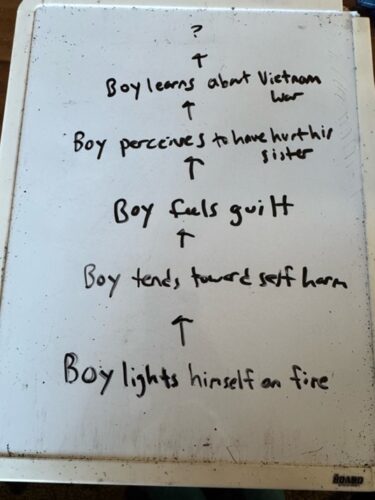 ?
↑
Boy learns about Vietnam
War
↑
Boy perceives to have hurt his
sister
↑
Boy feels guilt
↑
Boy tends toward self harm
↑
Boy lights himself on fire
BOARD